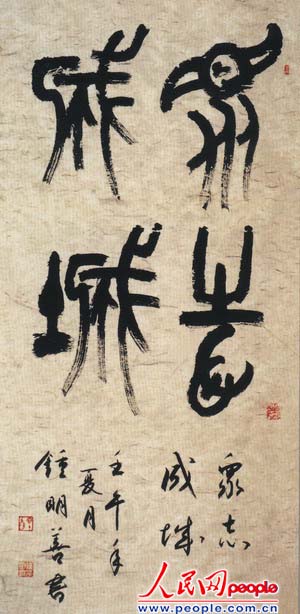 衆志
成城
衆志
成城
壬午年
夏月
鍾明善書
人民网people
www.people.com.cn